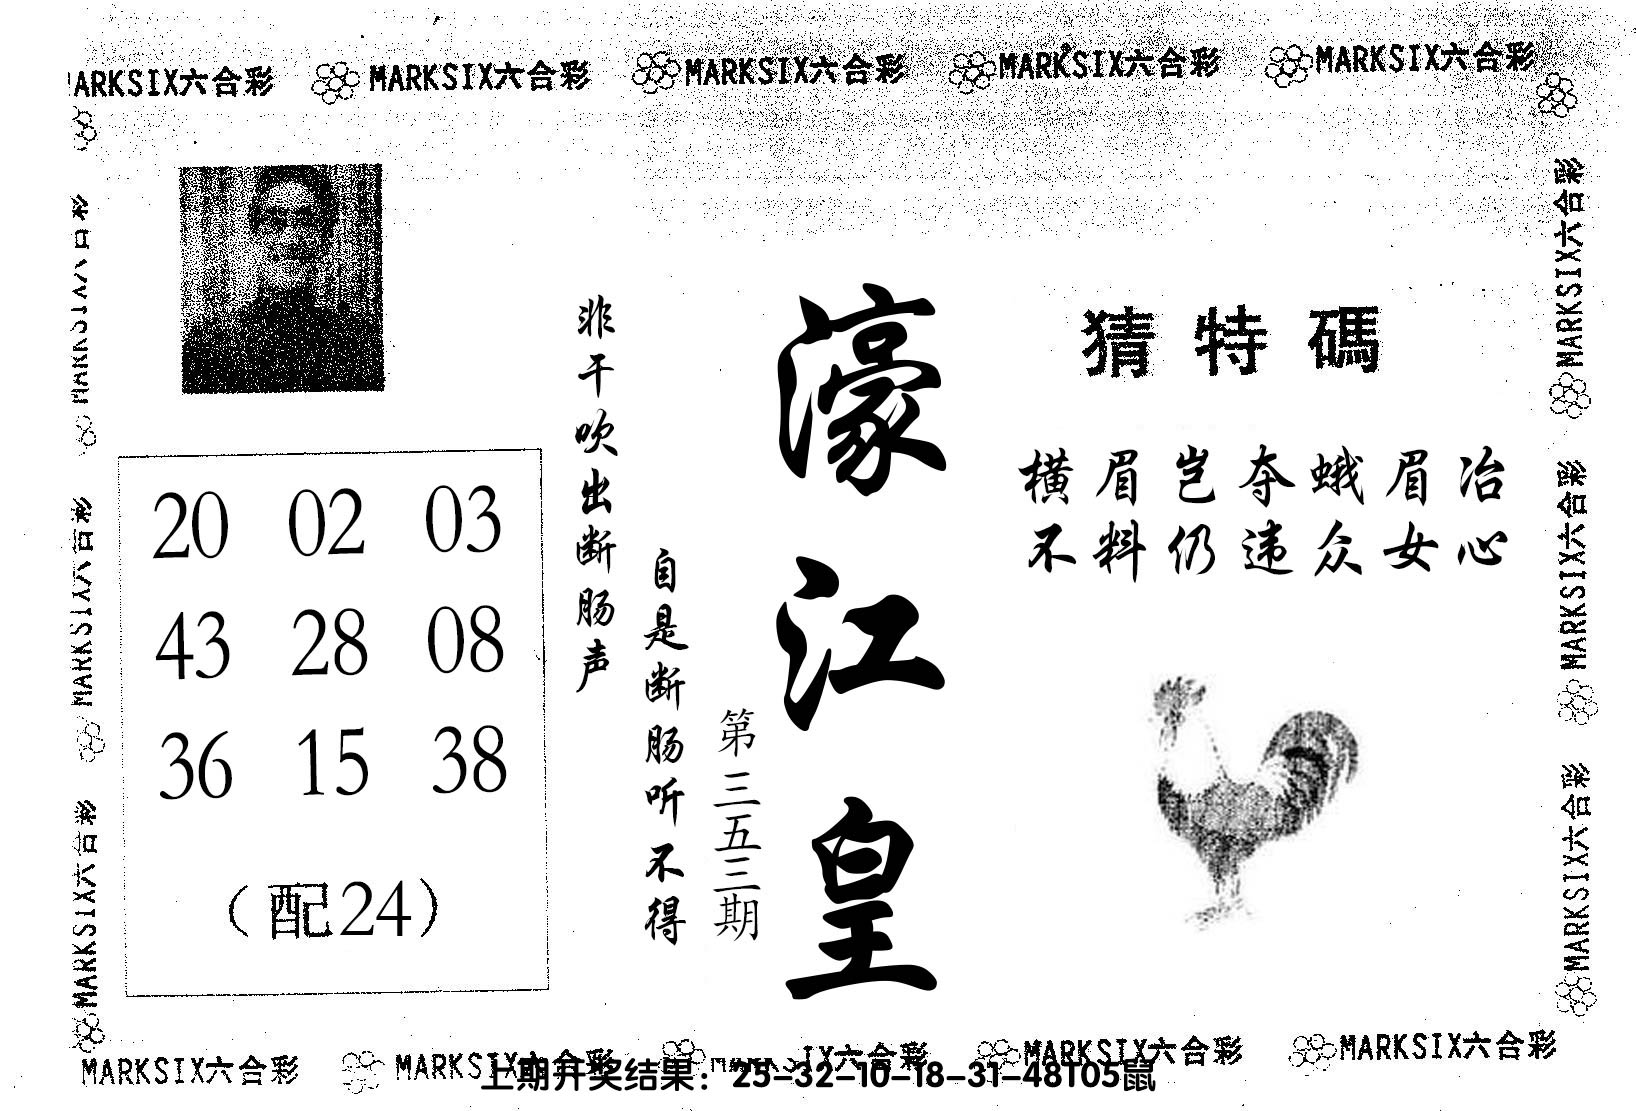 MARKSIX六合彩 MARKSIX六合彩 MARKSIX六合彩 MARKSIX六合彩 MARKSIX六合彩
猜特碼
横眉岂夺蛾眉冶
不料仍违众女心
濠江皇
第三五三期
非干吹出断肠声
自是断肠听不得
20 02 03
43 28 08
36 15 38
（配24）
MARKSIX六合彩
MARKSIX六合彩
MARKSIX六合彩
MARKSIX六合彩
MARKSIX六合彩
MARKSIX六合彩
MARKSIX六合彩 MARKSIX六合彩 MARKSIX六合彩 MARKSIX六合彩 MARKSIX六合彩
上期开奖结果：25-32-10-18-31-48T05鼠